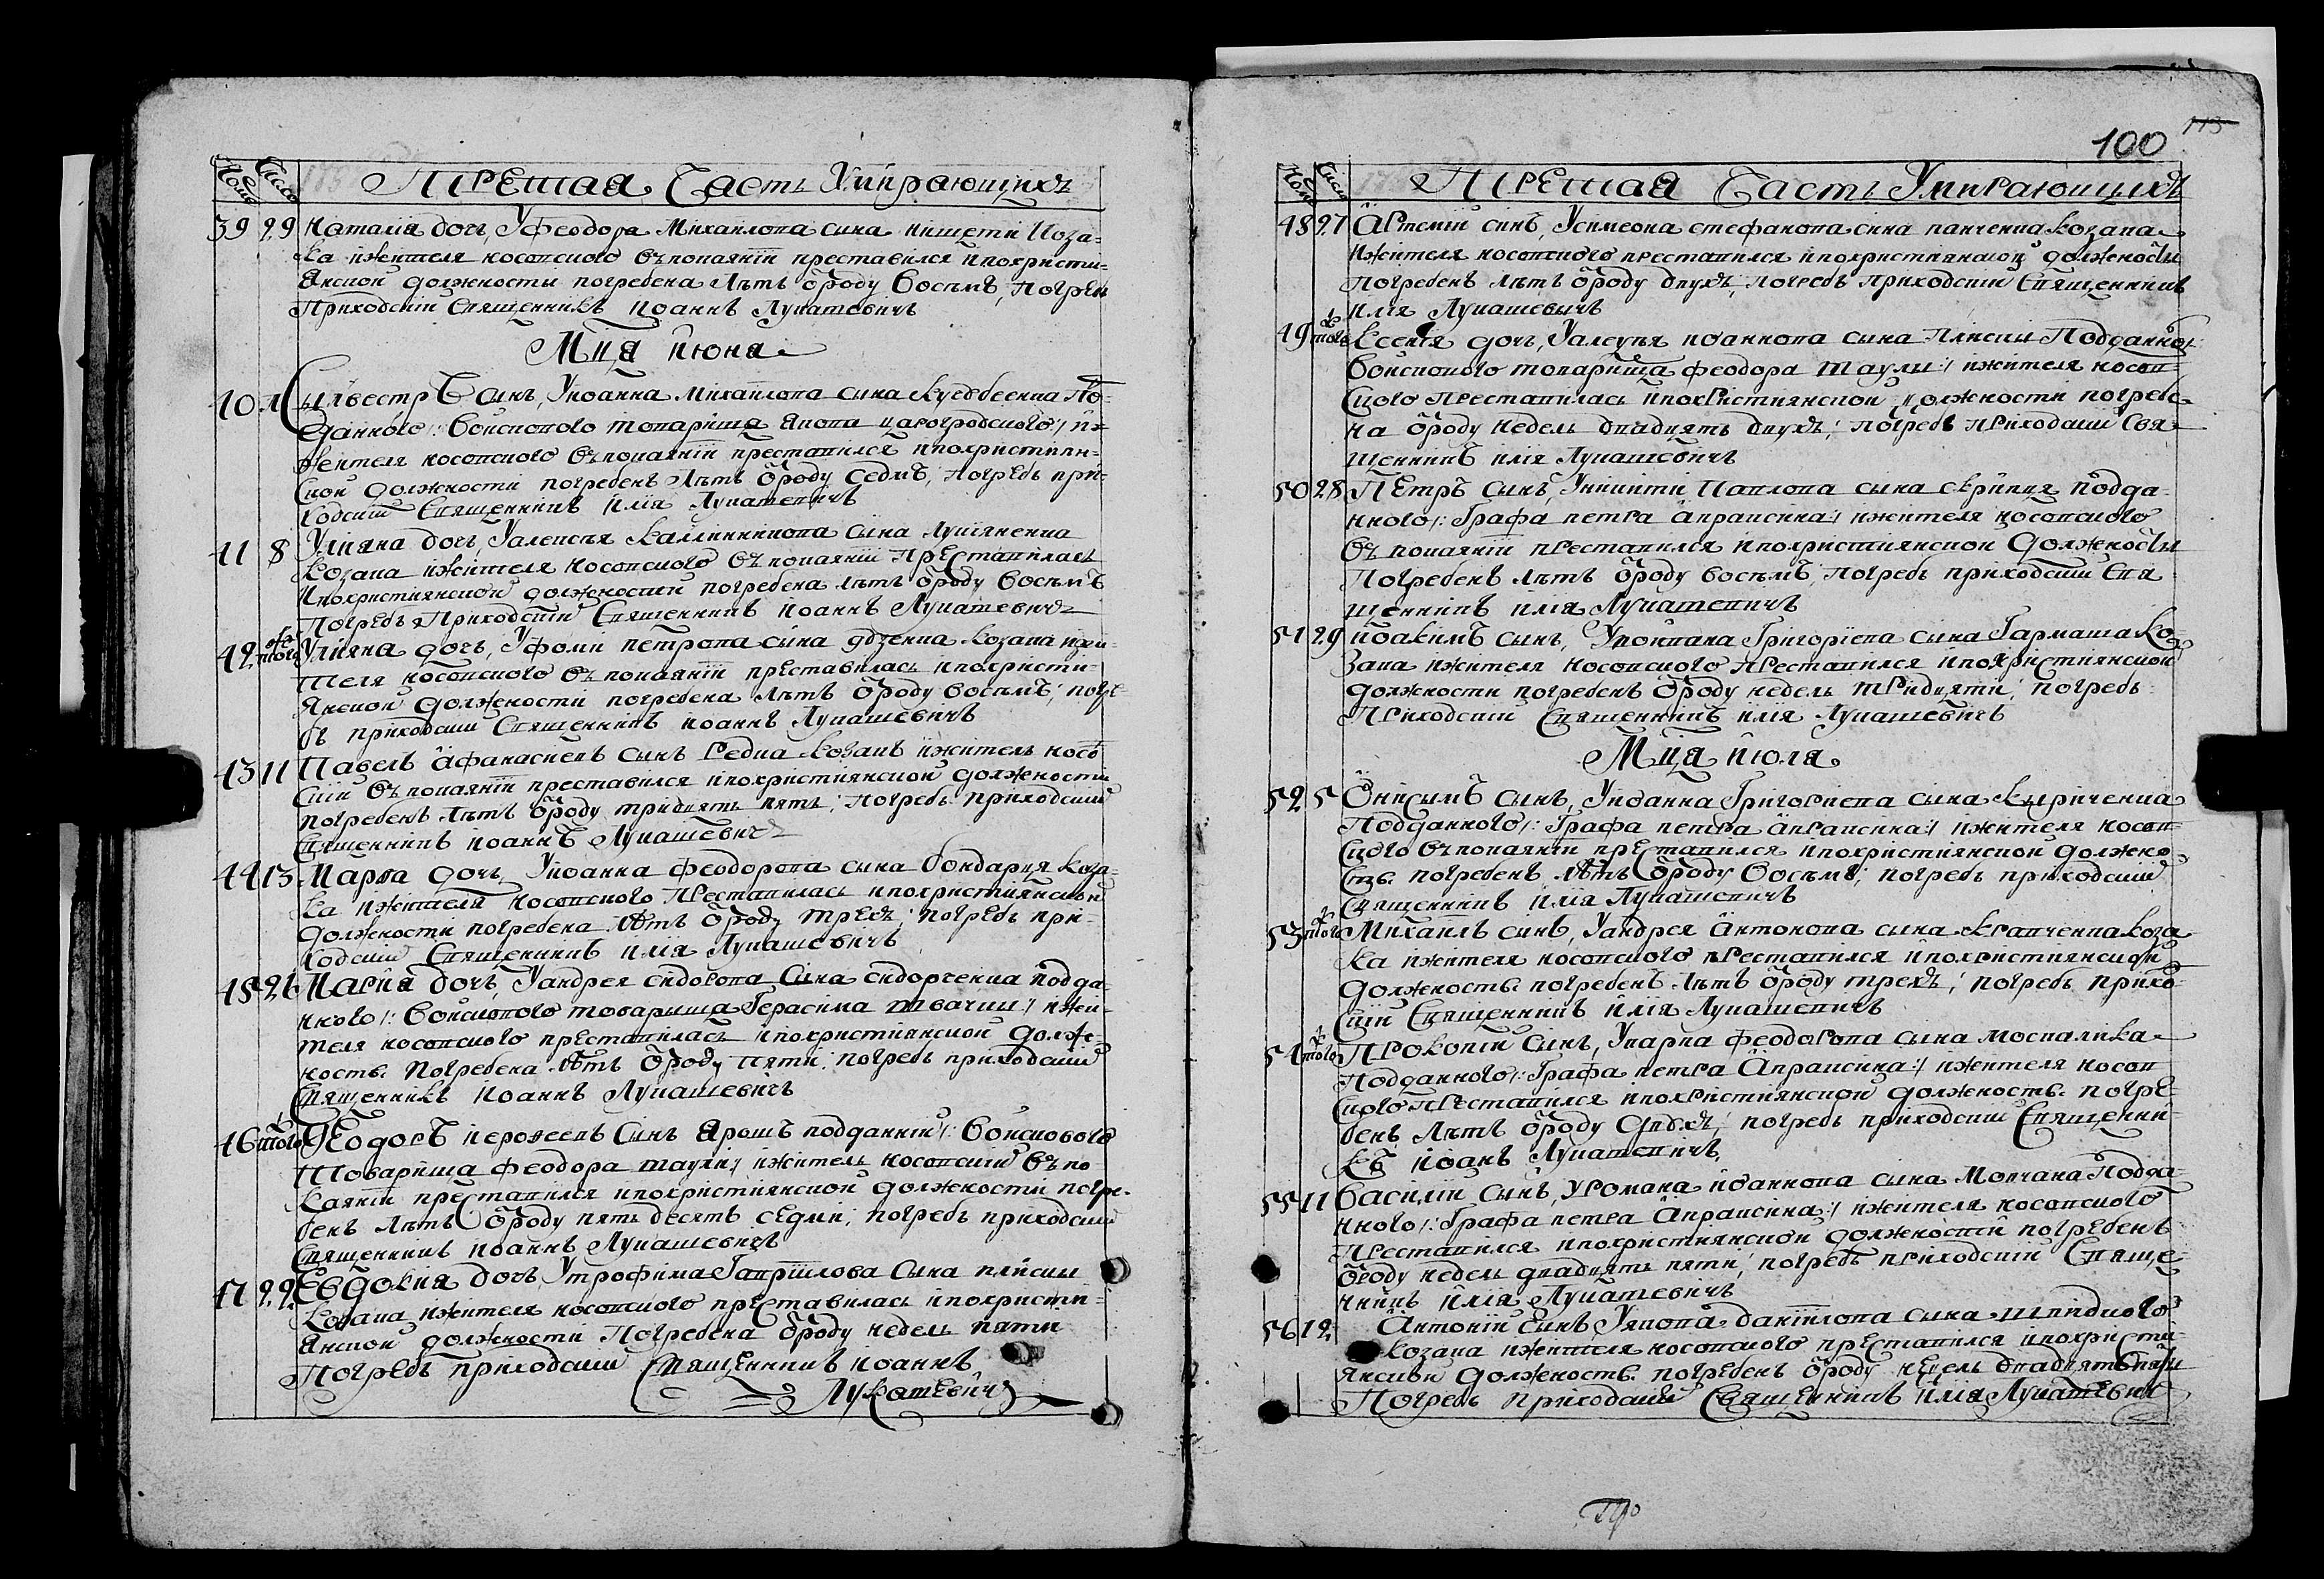 Номе Число Третая Часть Умирающихъ
39 29 Наталіа дочь, У Феодора Михаилова сина Никитти Коза-
ка и жителя носовского въ покаяніи преставился и по христи-
янской должности погребена лѣтъ ѿ роду Восѣмъ, погребъ
Приходскій Священникъ Иоаннъ Лукашевичъ
Мца июня
40 Сылвестръ Синъ, У Иоанна Михаилова сина По-
данного /: Войскового товариша Якова Царогродского :/ и ж-
жителя носовского въ покаяніи преставился и по християн-
ской должности погребенъ лѣтъ ѿ роду Седмъ, погребъ при-
ходскій Священникъ Илія Лукашевичъ
41 8 Уліяна дочъ, У Алексѣя Калинникова сина Лукіяненка
козака и жителя носовского въ покаяніи преставилась
и по християнской должности погребена лѣтъ ѿ роду Восѣмъ
Погребъ Приходскій Священникъ Иоаннъ Лукашевичъ
42 того Уліяна дочъ, У Фоми Петрова сина козака и жи-
теля носовского въ покаяніи преставилась и по христи-
янской должности погребена лѣтъ ѿ роду Восѣмъ, погре-
бъ приходскій Священникъ Иоаннъ Лукашевичъ
43 11 Павелъ Афанасиевъ синъ Редка козакъ и житель носов
скій въ покаяніи преставился и по християнской должности
погребенъ лѣтъ ѿ роду тридцять пять, погребъ приходскій
Священникъ Иоаннъ Лукашевичъ
44 13 Марѳа дочъ, У Иоанна Феодорова сина Бондарця Коза-
ка и жителя носовского преставилась и по християнской
должности погребена лѣтъ ѿ роду трехъ, погребъ при-
ходскій Священникъ Илія Лукашевичъ
45 26 Марія дочъ, У Андрея Сидорова сина Сидорченка подда-
нного /: Войскового товарыша Герасима Ткачки :/ и жи-
теля носовского преставилась и по християнской долж-
ность погребена лѣтъ ѿ роду пяти, погребъ приходскій
Священникъ Иоаннъ Лукашевичъ
46 того Феодоръ Иероѳеевъ Синъ Ярошъ подданній /: Войскового
Товариша Феодора Таули :/ и житель носовскій въ по
каяніи преставился и по християнской должности погре-
бенъ лѣтъ ѿ роду пять десять седми, погребъ приходскій
Священникъ Иоаннъ Лукашевичъ
47 22 Евдокия дочъ, У Трофима Гавріилова Сина Пліски
козака и жителя носовского преставилась и по христи-
янской должности Погребена ѿ роду недель пяти
Погребъ приходскій Священникъ Иоаннъ
Лукашевичъ
100 113
Номе Число Третая Часть Умирающихъ
48 27 Артемій синъ, У Симеона Стефанова сина Панченка козака
и жителя носовского преставился и по християнской должносты
погребенъ лѣтъ ѿ роду двухъ, погребъ Приходскій Священникъ
Илія Лукашевычъ
49 того Ксенія дочъ, У Алеѵѣя Иоаннова сина Пліски Подданног
Войскового товариша Феодора Таулы :/ и жителя носов-
ского преставилась и по християнской должности погребе-
на ѿ роду недель двадцять двухъ, погребъ приходскій Свя-
щенникъ Илія Лукашевичъ
50 28 Петръ синъ, У Никити Павлова сина Скрипця подда-
нного /: Графа Петра Апраксина :/ и жителя носовского
въ покаяніи преставился и по християнской должносты
Погребенъ лѣтъ ѿ роду восѣмъ, погребъ приходскій Свя
щенникъ Илія Лукашевичъ
51 29 Иоакимъ синъ, Григоріева сина Гармаша ко-
зака и жителя носовского преставился и по християнской
должности погребенъ ѿ роду недель тридцяти, погребъ
Приходскій Священникъ Илія Лукашевичъ
Мца июля
52 5 Онисымъ синъ, У Иоанна Григориева сина Кыриченка
Подданного /: Графа Петра Апраксина :/ и жителя носов-
ского въ покаяніи преставился и по християнской должно
сть погребенъ лѣтъ ѿ роду Восѣмъ, погребъ приходскій
Священникъ Илія Лукашевичъ
53 того Михаилъ синъ, У Андрея Антонова сина Кравченка коза
ка и жителя носовского преставился и по християнской
должность погребенъ лѣтъ ѿ роду трехъ, погребъ прихо-
скій Священникъ Илія Лукашевичъ
54 того Прокопій Синъ, У Карпа Феодорова сина Москалика
Подданного /: Графа Петра Апраксина :/ и жителя носов
ского преставился и по християнской должность погре-
бенъ лѣтъ ѿ роду двохъ, погребъ приходскій Священни-
къ Иоанъ Лукашевичъ
55 11 Василій Синъ, У Романа Иоаннова сина Мовчана Подда-
нного /: Графа Петра Апраксина :/ и жителя носовского
Преставился и по християнской должности погребенъ
ѿ роду недель двадцять пяти, погребъ приходскій Свяще-
нникъ Илія Лукашевичъ
56 12 Антоній Синъ, У Якова Даніилова сина
козака и жителя носовского преставился и по христи-
янской должность погребенъ ѿ роду недель двадцять
Погребъ приходскій Священникъ Илія Лукашевич